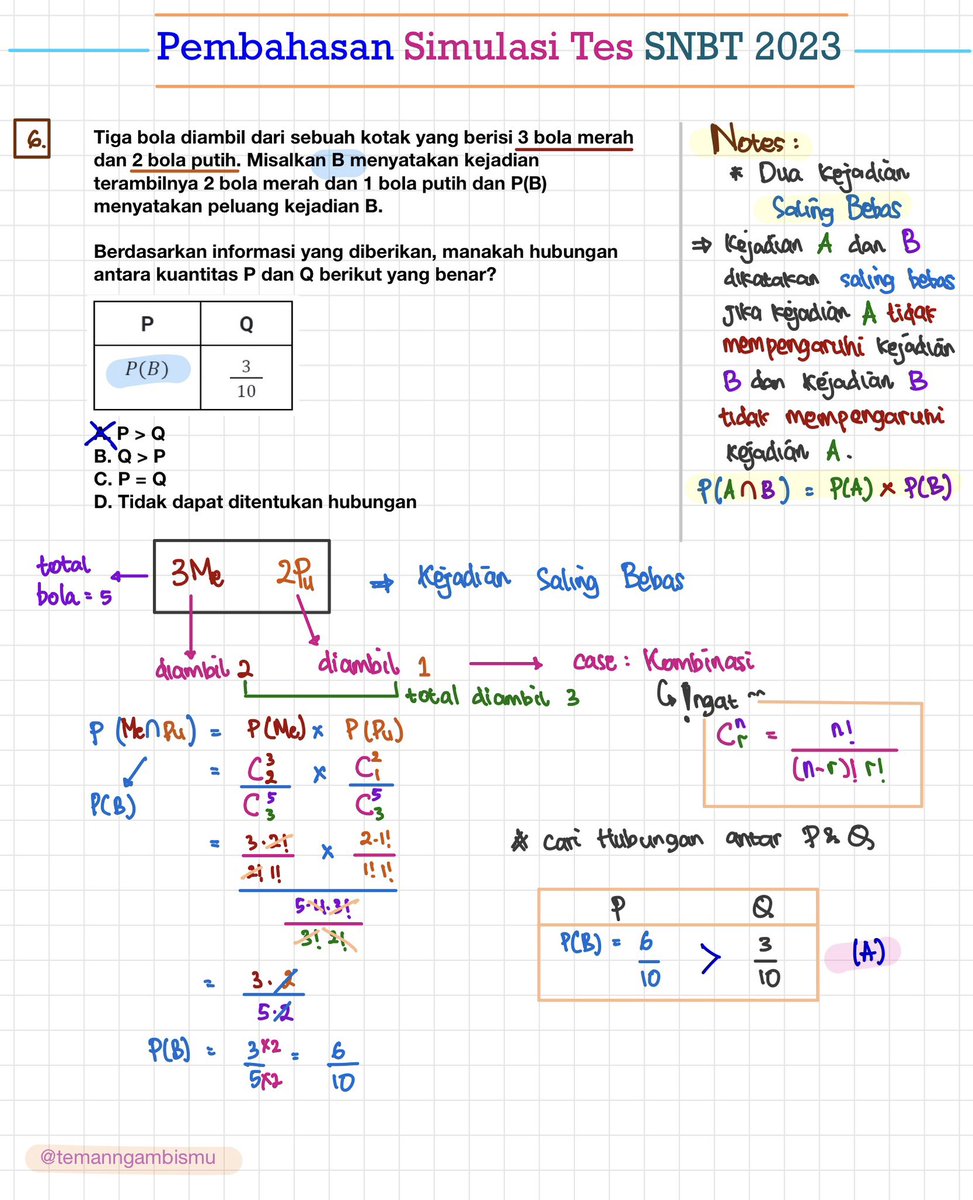 Pembahasan Simulasi Tes SNBT 2023
6.
Tiga bola diambil dari sebuah kotak yang berisi 3 bola merah
dan 2 bola putih. Misalkan B menyatakan kejadian
terambilnya 2 bola merah dan 1 bola putih dan P(B)
menyatakan peluang kejadian B.
Berdasarkan informasi yang diberikan, manakah hubungan
antara kuantitas P dan Q berikut yang benar?
P Q
P(B) 3/10
A. P > Q
B. Q > P
C. P = Q
D. Tidak dapat ditentukan hubungan
Notes :
* Dua Kejadian
Saling Bebas
⇒ Kejadian A dan B
dikatakan saling bebas
jika kejadian A tidak
mempengaruhi kejadian
B dan kejadian B
tidak mempengaruhi
kejadian A.
P(A∩B) = P(A) × P(B)
total
bola = 5
← 3Me 2Pu ⇒ Kejadian Saling Bebas
diambil 2 diambil 1 → case : Kombinasi
total diambil 3
↳ Ingat ~
C^n_r = n! / (n-r)! r!
P (Me∩Pu) = P(Me) × P(Pu)
P(B)
= C^3_2 / C^5_3 × C^2_1 / C^5_3
= 3·2! / 2! 1! × 2·1! / 1! 1!
5·4·3! / 3! 2!
= 3·2 / 5·2
P(B) = 3×2 / 5×2 = 6/10
* Cari Hubungan antar P & Q
P Q
P(B) = 6/10 > 3/10 (A)
@temanngambismu